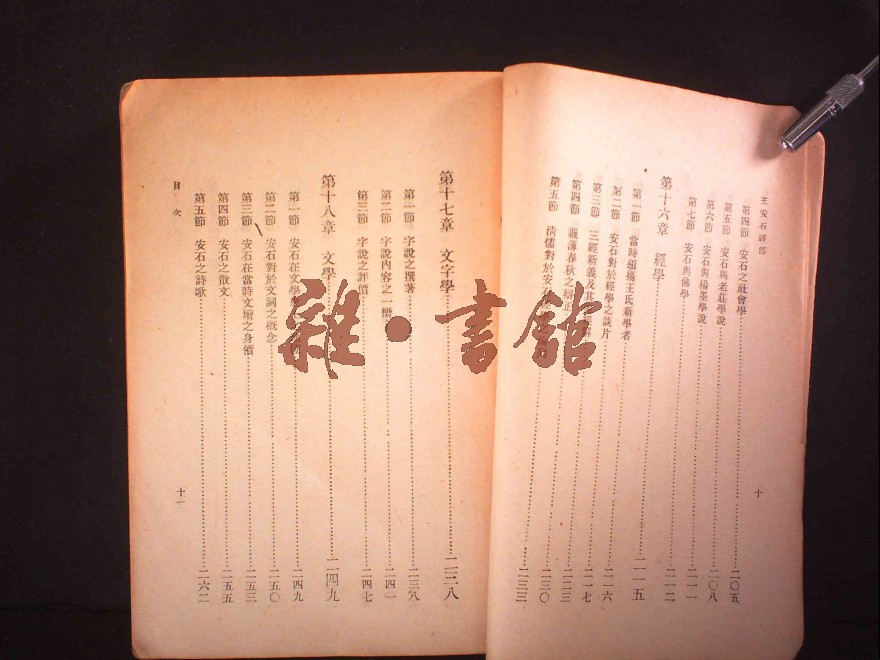 王安石評傳
第四節 安石之社會學 二〇五
第五節 安石與老莊學說 二〇八
第六節 安石與楊墨學說 二一一
第七節 安石與佛學 二一二
第十六章 經學 二一五
第一節 當時頌揚王氏新學者 二一六
第二節 安石對於經學之談片 二一七
第三節 三經新義及其 二二三
第四節 譏薄春秋之辯正 二三〇
第五節 清儒對於安 二三三
十
第十七章 文字學 二三八
第一節 字說之撰著 二三八
第二節 字說內容之一臠 二四一
第三節 字說之評價 二四七
第十八章 文學 二四九
第一節 安石在文學 二四九
第二節 安石對於文詞之概念 二五〇
第三節 安石在當時文壇之身價 二五三
第四節 安石之散文 二五五
第五節 安石之詩歌 二六二
目次
十一
雜·書館